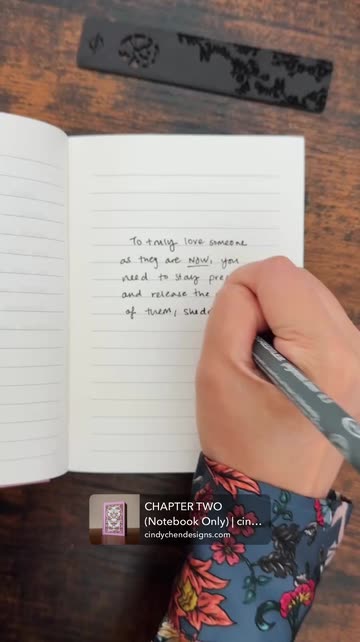 To truly love someone
as they are NOW, you
need to stay
and release the
of them,
CHAPTER TWO
(Notebook Only) | cin...
cindychendesigns.com